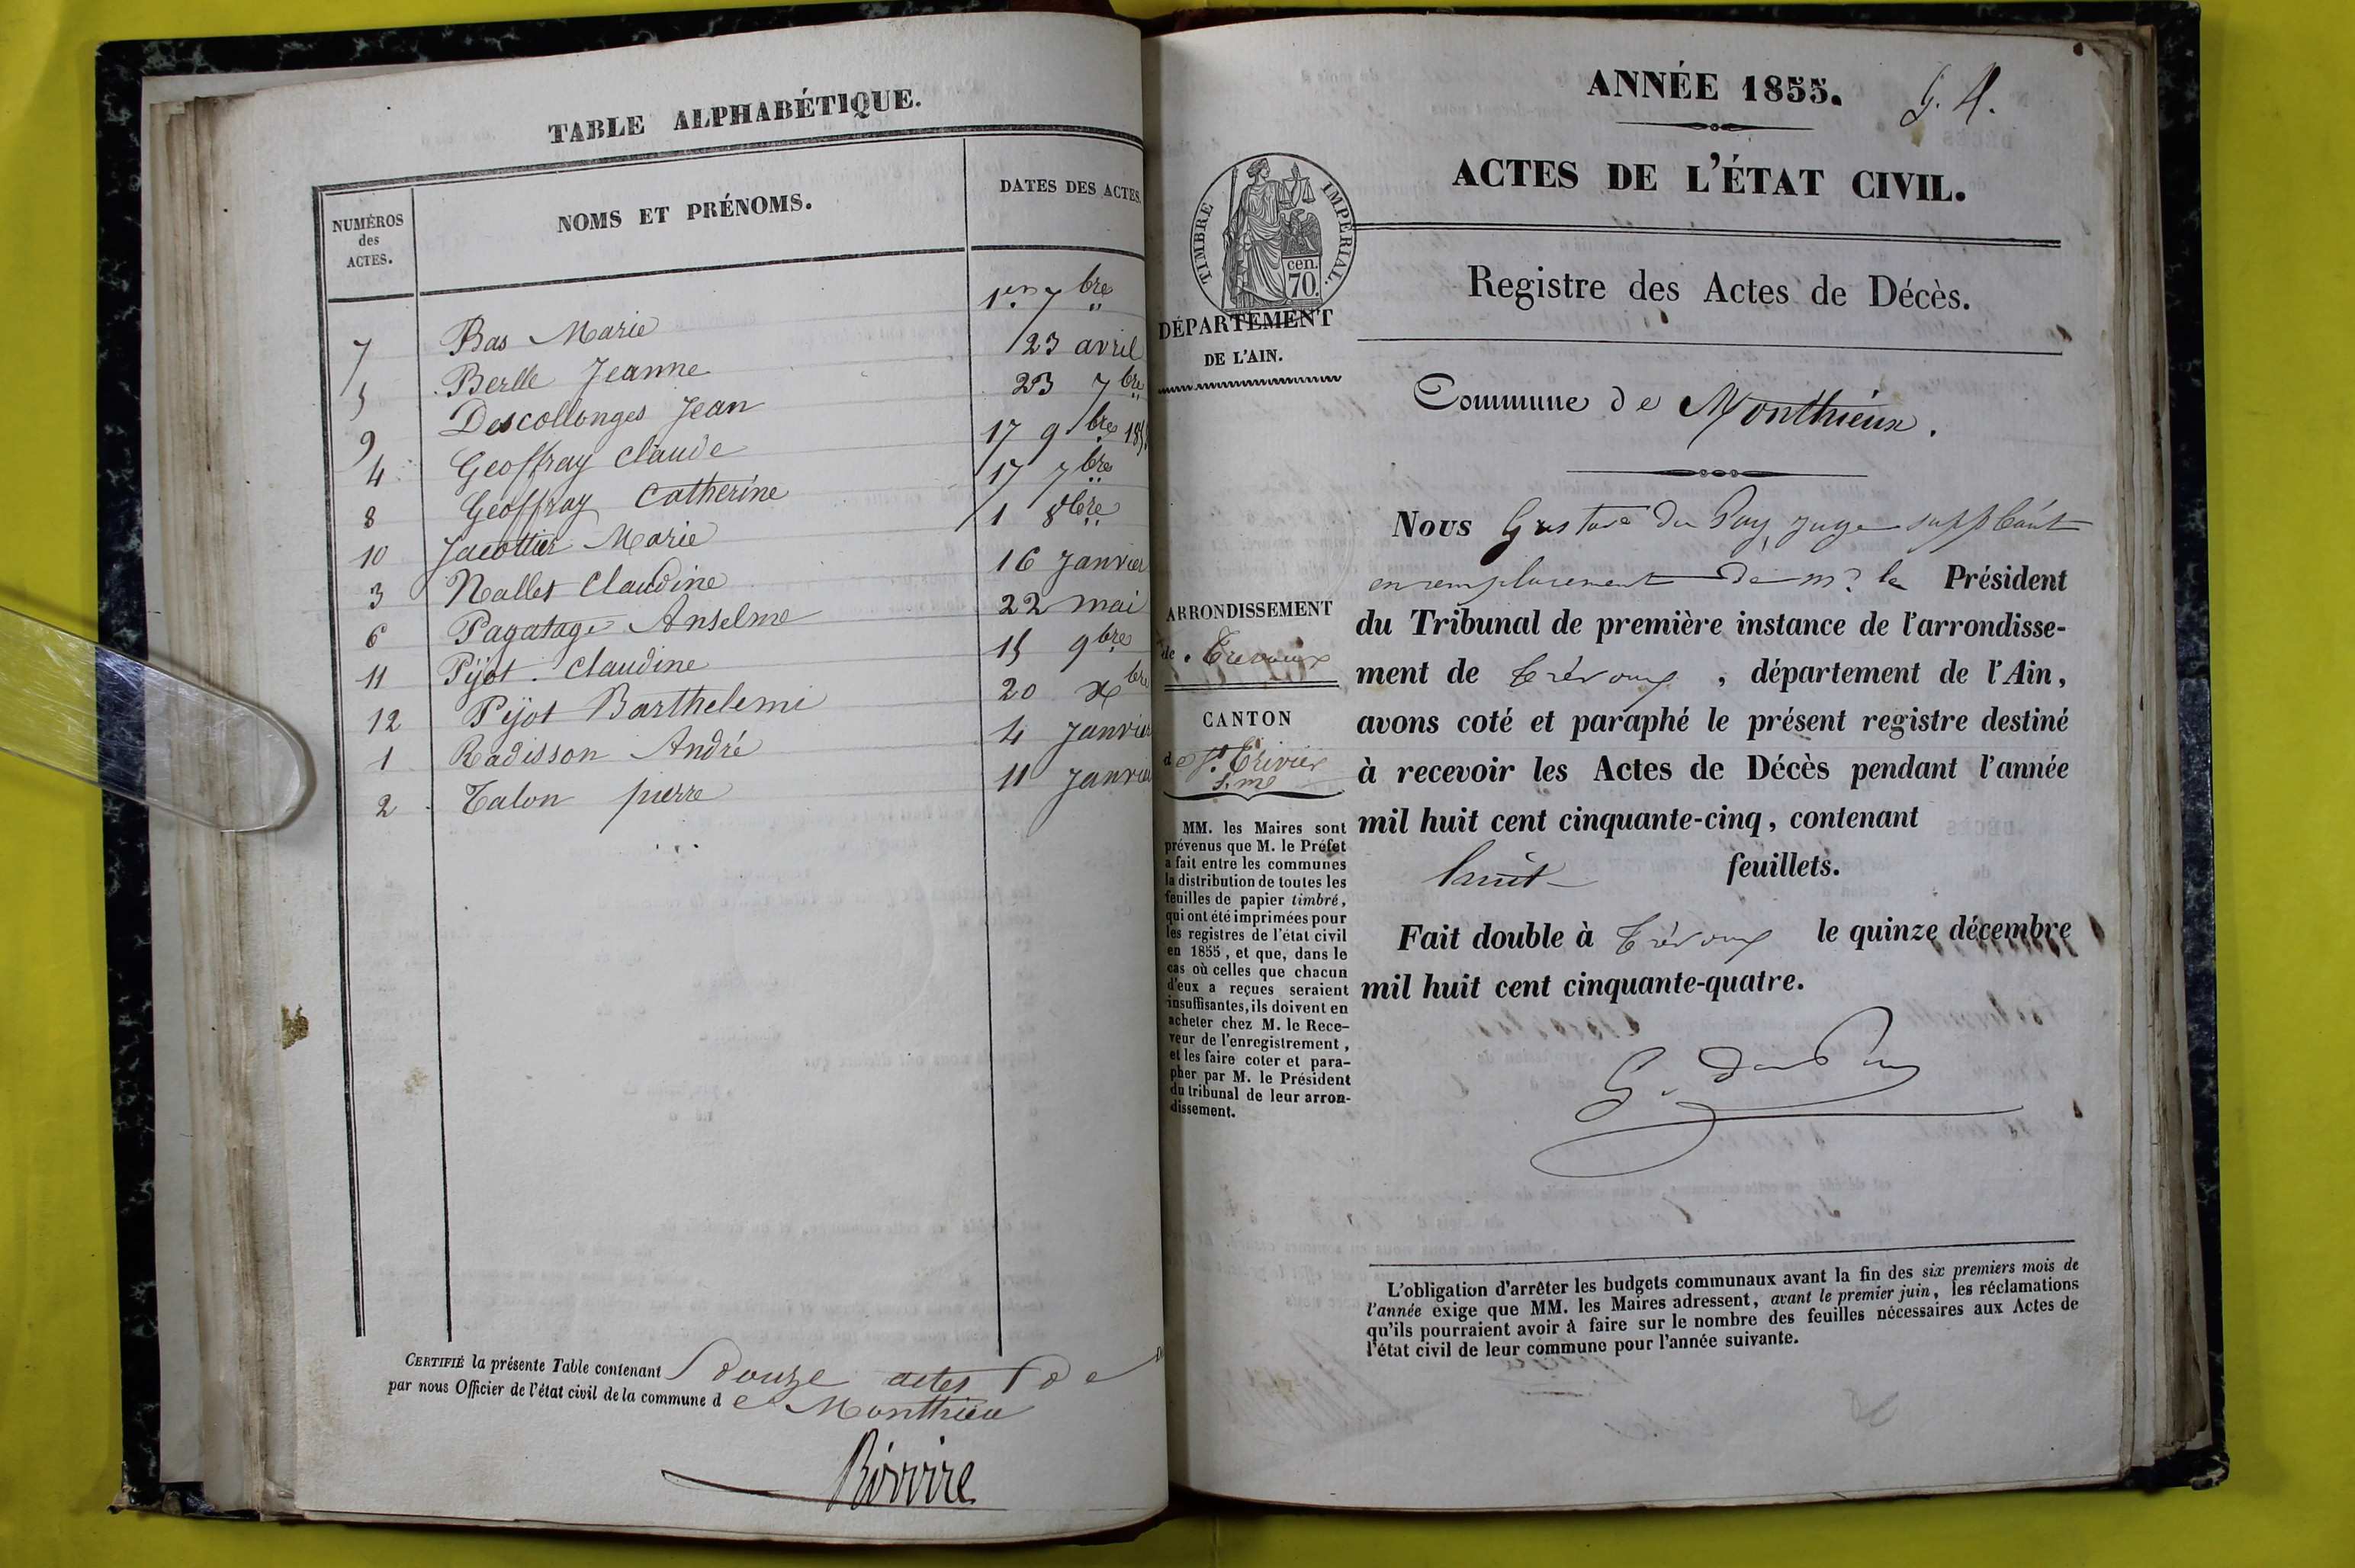 TABLE ALPHABÉTIQUE.
NUMÉROS
des
ACTES.
NOMS ET PRÉNOMS.
DATES DES ACTES.
7 Bas Marie 1er 7bre
5 Berlle Jeanne 23 avril
9 Descollonges Jean 23 7bre
4 Geoffray Claude 17 9bre
8 Geoffray Catherine 17 7bre
10 Jacottier Marie 1 8bre
3 Nallet Claudine 16 Janvier
6 Pagatage Anselme 22 mai
11 Pijot Claudine 15 9bre
12 Pijot Barthelemi 20 Xbre
1 Radisson André 4 Janvier
2 Talon pierre 11 Janvier
CERTIFIÉ la présente Table contenant douze actes de
par nous Officier de l'état civil de la commune de Monthieu
ANNÉE 1855.
G. A.
ACTES DE L'ÉTAT CIVIL.
TIMBRE IMPÉRIAL.
cen.
70.
DÉPARTEMENT
DE L'AIN.
Registre des Actes de Décès.
Commune de Monthieux.
ARRONDISSEMENT
de Trevoux
CANTON
de St. Trivier
s. me
MM. les Maires sont
prévenus que M. le Préfet
a fait entre les communes
la distribution de toutes les
feuilles de papier timbré,
qui ont été imprimées pour
les registres de l'état civil
en 1855, et que, dans le
cas où celles que chacun
d'eux a reçues seraient
insuffisantes, ils doivent en
acheter chez M. le Rece-
veur de l'enregistrement,
et les faire coter et para-
pher par M. le Président
du tribunal de leur arron-
dissement.
Nous Gustave du Puy, Juge suppléant
en remplacement de mr. le Président
du Tribunal de première instance de l'arrondisse-
ment de Trévoux, département de l'Ain,
avons coté et paraphé le présent registre destiné
à recevoir les Actes de Décès pendant l'année
mil huit cent cinquante-cinq, contenant
huit feuillets.
Fait double à Trévoux le quinze décembre
mil huit cent cinquante-quatre.
G. du Puy
L'obligation d'arrêter les budgets communaux avant la fin des six premiers mois de
l'année exige que MM. les Maires adressent, avant le premier juin, les réclamations
qu'ils pourraient avoir à faire sur le nombre des feuilles nécessaires aux Actes de
l'état civil de leur commune pour l'année suivante.